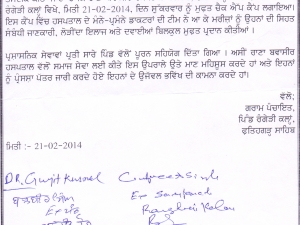 ਰੰਗੇੜੀ ਕਲਾਂ ਵਿਖੇ, ਮਿਤੀ 21-02-2014, ਦਿਨ ਸ਼ੁੱਕਰਵਾਰ ਨੂੰ ਮੁਫਤ ਚੈਕ ਅੱਪ ਕੈਂਪ ਲਗਾਇਆ।
ਇਸ ਕੈਂਪ ਵਿੱਚ ਹਸਪਤਾਲ ਦੇ ਮੰਨੇ-ਪ੍ਰਮੰਨੇ ਡਾਕਟਰਾਂ ਦੀ ਟੀਮ ਨੇ ਆ ਕੇ ਮਰੀਜਾਂ ਨੂੰ ਉਹਨਾਂ ਦੀ ਸਿਹਤ
ਸੰਬੰਧੀ ਜਾਣਕਾਰੀ, ਲੋੜੀਂਦਾ ਇਲਾਜ ਅਤੇ ਦਵਾਈਆਂ ਬਿਲਕੁਲ ਮੁਫਤ ਪ੍ਰਦਾਨ ਕੀਤੀਆਂ।
ਪ੍ਰਸ਼ਾਸਨਿਕ ਸੇਵਾਵਾਂ ਪ੍ਰਤੀ ਸਾਰੇ ਪਿੰਡ ਵੱਲੋਂ ਪੂਰਨ ਸਹਿਯੋਗ ਦਿੱਤਾ ਗਿਆ। ਅਸੀਂ ਰਾਣਾ ਬਵਾਸੀਰ
ਹਸਪਤਾਲ ਵੱਲੋਂ ਸਮਾਜ ਸੇਵਾ ਲਈ ਕੀਤੇ ਇਸ ਉਪਰਾਲੇ ਉਤੇ ਮਾਣ ਮਹਿਸੂਸ ਕਰਦੇ ਹਾਂ ਅਤੇ ਇਹਨਾਂ
ਨੂੰ ਪ੍ਰਸੰਸਾ ਪੱਤਰ ਜਾਰੀ ਕਰਦੇ ਹੋਏ ਇਹਨਾਂ ਦੇ ਉੱਜਵਲ ਭਵਿੱਖ ਦੀ ਕਾਮਨਾ ਕਰਦੇ ਹਾਂ!
ਵੱਲੋਂ:
ਗਰਾਮ ਪੰਚਾਇਤ,
ਪਿੰਡ ਰੰਗੇੜੀ ਕਲਾਂ,
ਫਤਿਹਗੜ੍ਹ ਸਾਹਿਬ
ਮਿਤੀ :- 21-02-2014
DR. Gurjit
Gurpreet Singh
Ex Sarpanch
Ex
Kalan